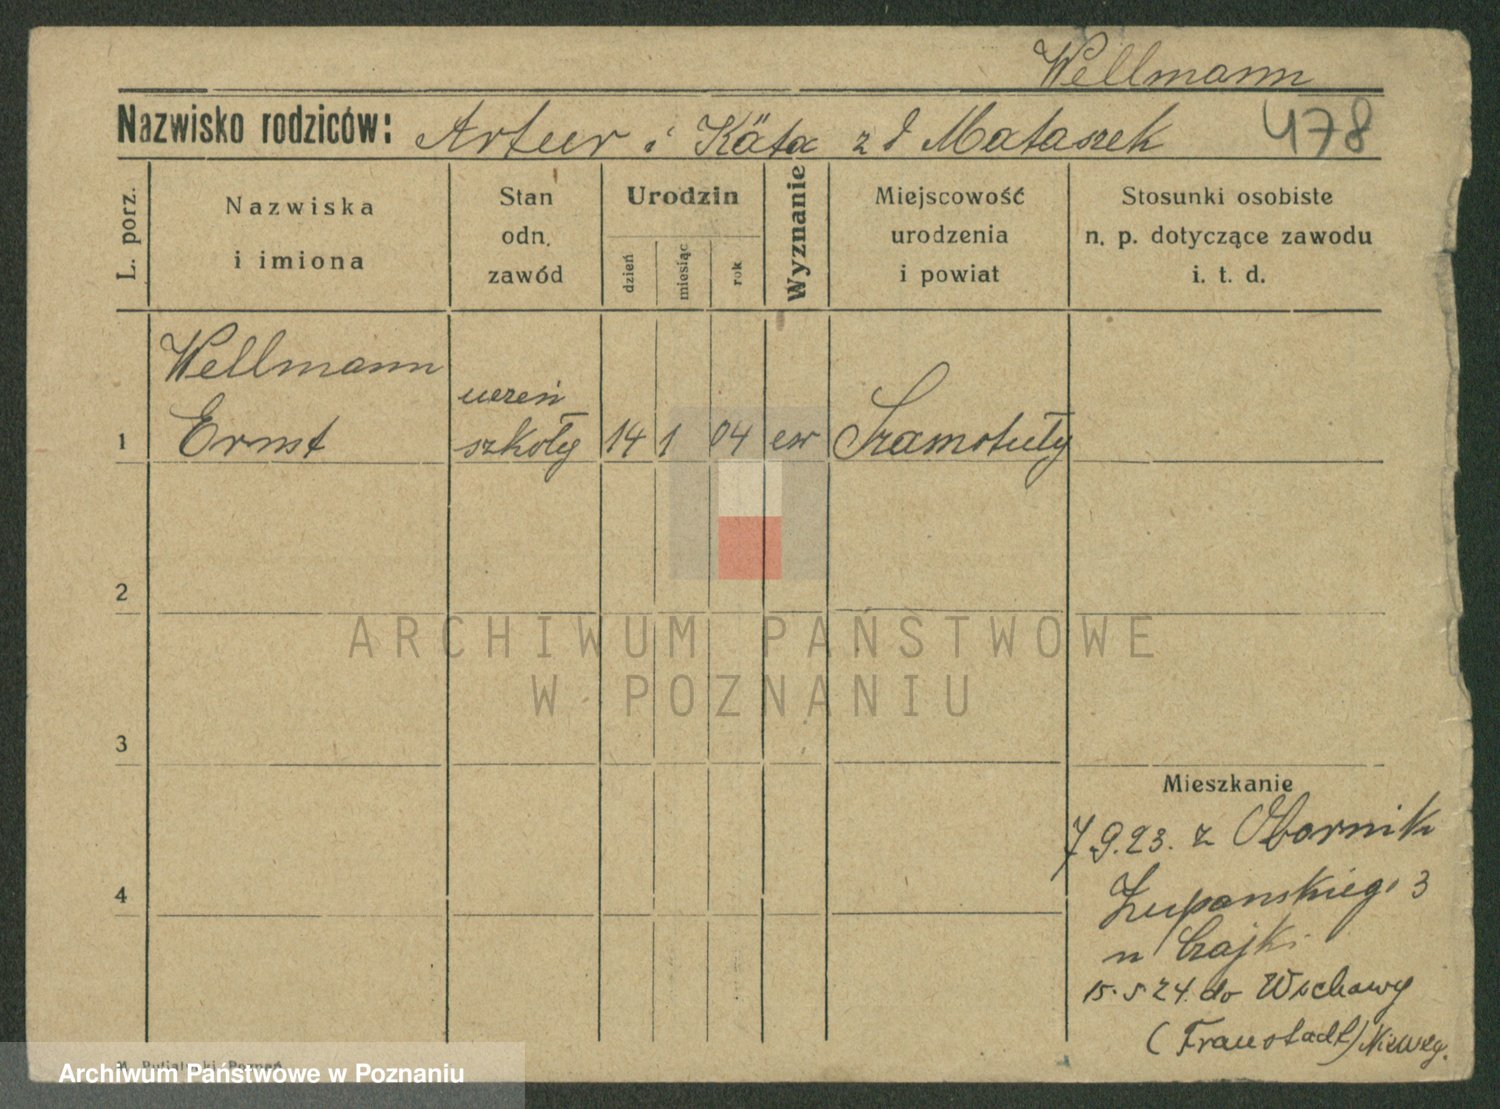 Wellmann
Nazwisko rodziców: Artur i Käta z d Mataszek 478
L. porz.
Nazwiska
i imiona
Stan
odn.
zawód
Urodzin
dzień
miesiąc
rok
Wyznanie
Miejscowość
urodzenia
i powiat
Stosunki osobiste
n. p. dotyczące zawodu
i. t. d.
Wellmann
Ernst
uczeń
szkoły
1 14 1 04 ew Szamotuły
2
ARCHIWUM PAŃSTWOWE
W POZNANIU
3
Mieszkanie
7.9.23. z Obornik
4
Żupańskiego 3
u Czajki
15.5 24. do Wschowy
(Fraustadt)
Archiwum Państwowe w Poznaniu